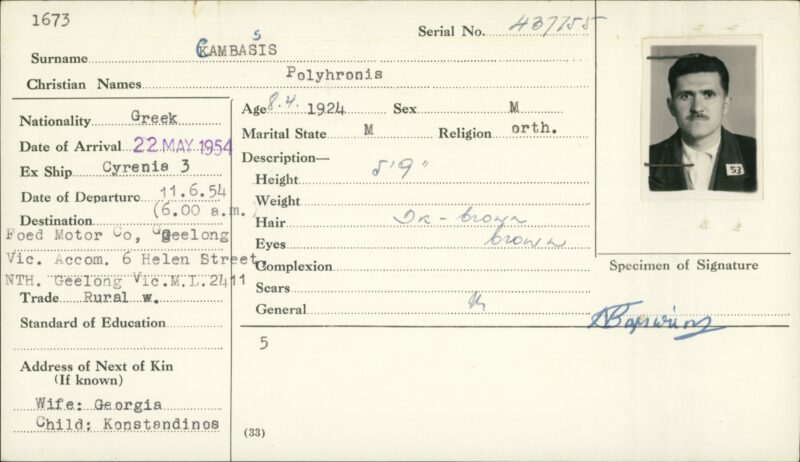 1673
Serial No. 437755
Surname CKAMBASIS
Christian Names Polyhronis
Nationality Greek
Date of Arrival 22 MAY 1954
Ex Ship Cyrenia 3
Date of Departure 11.6.54
(6.00 a.m.)
Destination
Foed Motor Co, Geelong
Vic. Accom. 6 Helen Street,
NTH. Geelong Vic.M.L.2411
Trade Rural w.
Standard of Education
Address of Next of Kin
(If known)
Wife: Georgia
Child: Konstandinos
Age 8.4. 1924 Sex M
Marital State M Religion orth.
Description—
Height 5'9"
Weight
Hair DK - brown
Eyes brown
Complexion
Scars
General
5
(33)
53
Specimen of Signature